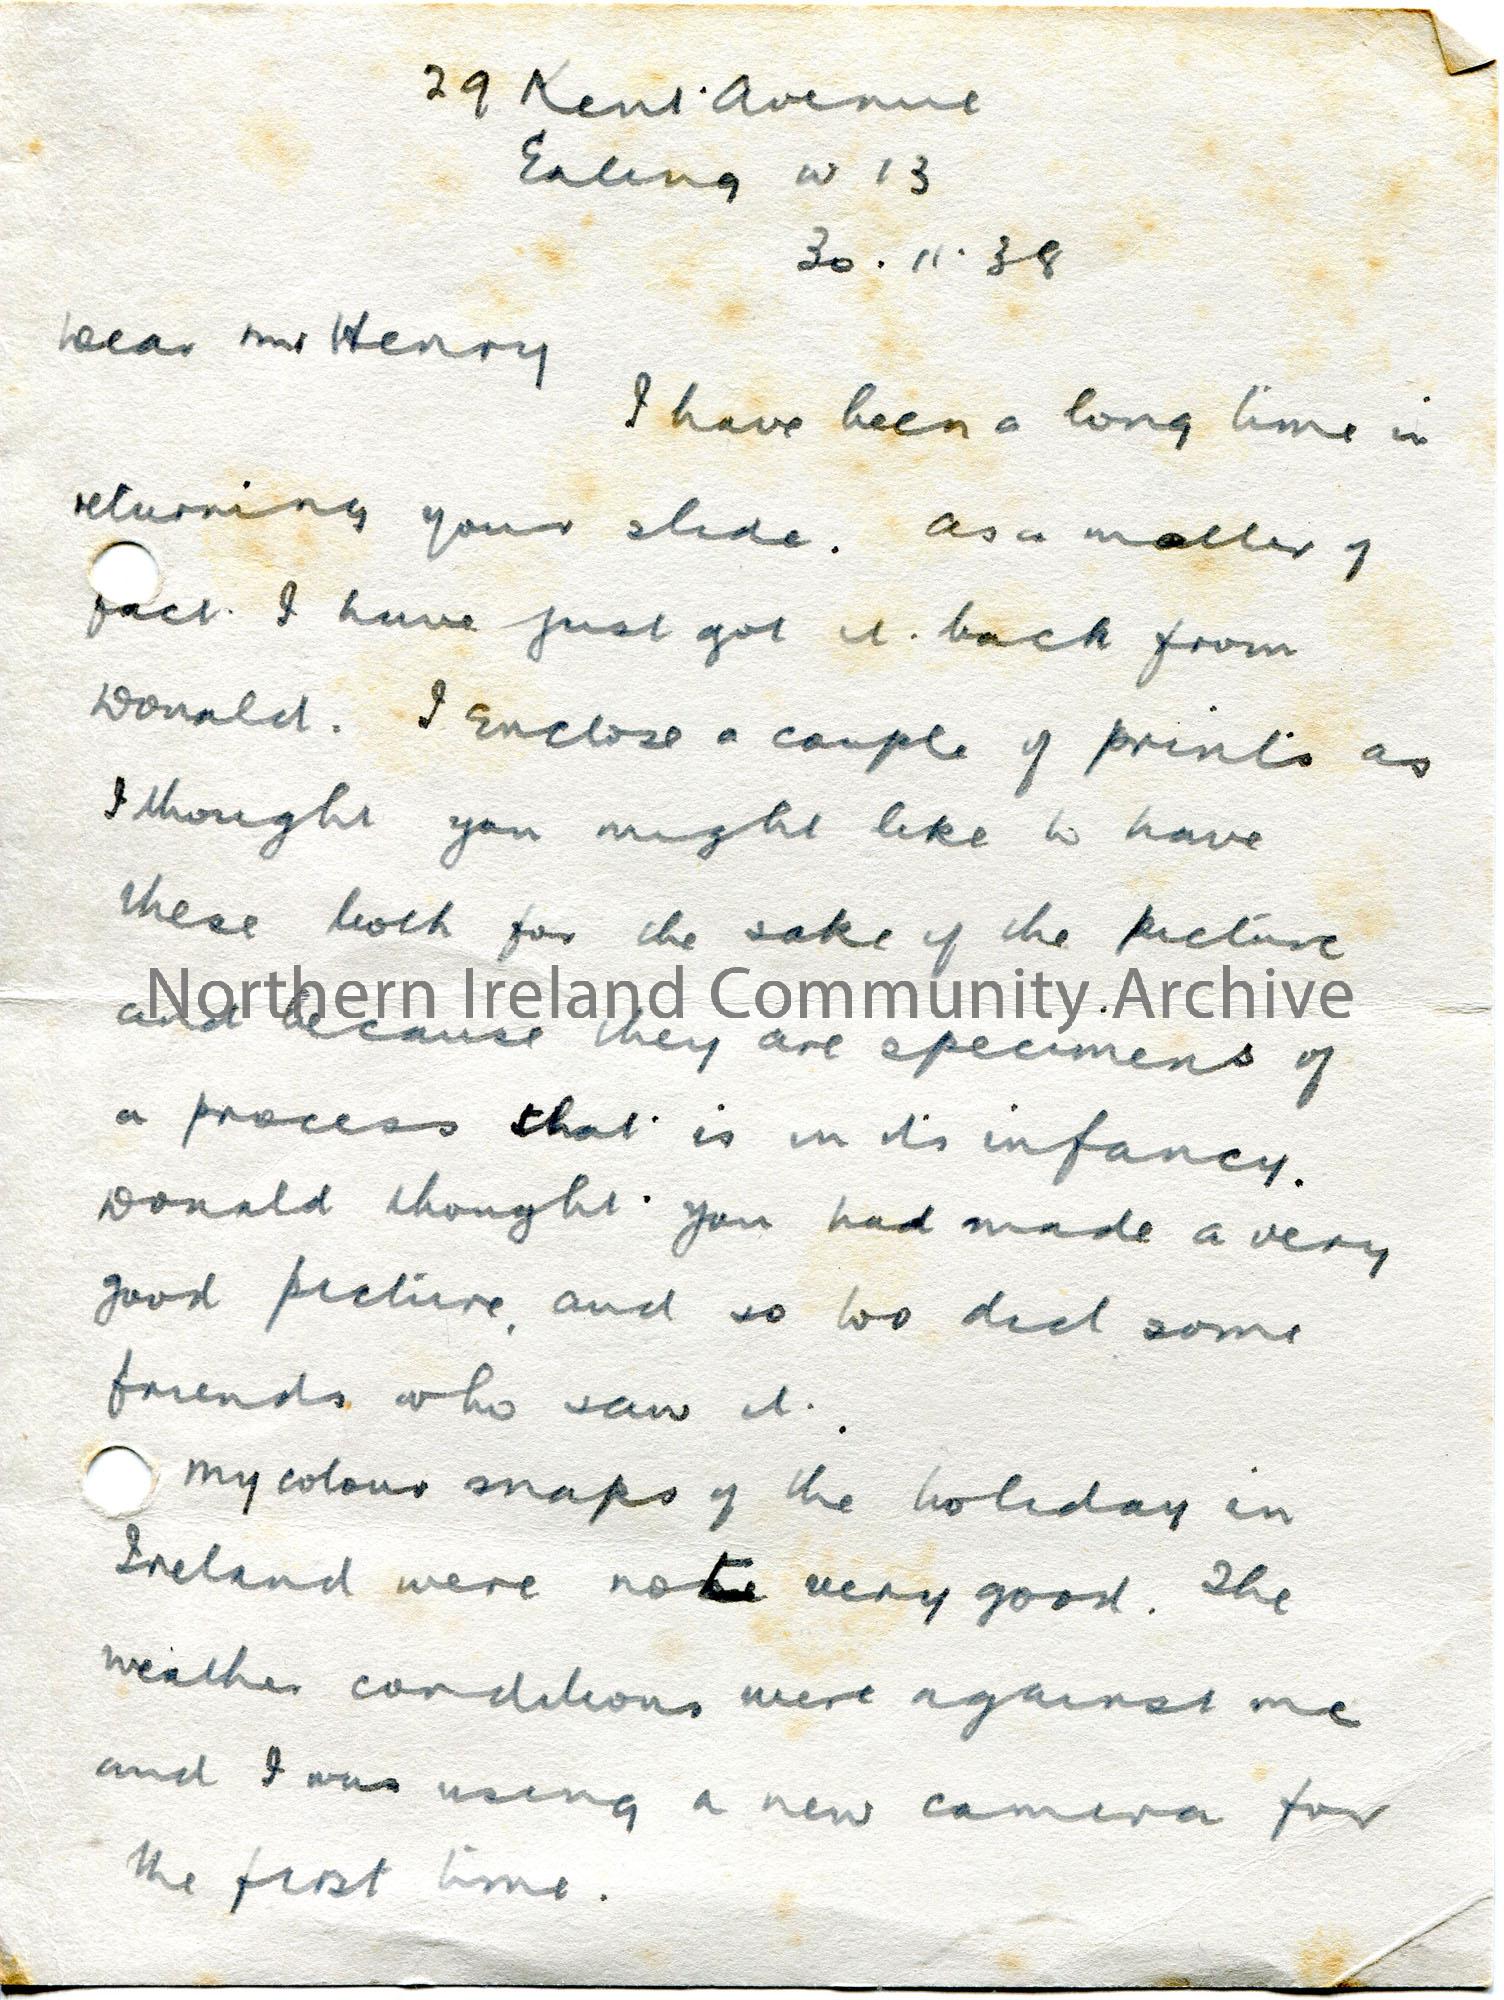 29 Kent Avenue
Ealing W 13
30.11.38
Dear Mr Henry
I have been a long time in
returning your slide. As a matter of
fact I have just got it back from
Donald. I enclose a couple of prints as
I thought you might like to have
these both for the sake of the picture
Northern Ireland Community Archive
and because they are specimens of
a process that is in its infancy.
Donald thought you had made a very
good picture, and so too did some
friends who saw it.
My colour snaps of the holiday in
Ireland were not very good. The
weather conditions were against me
and I was using a new camera for
the first time.